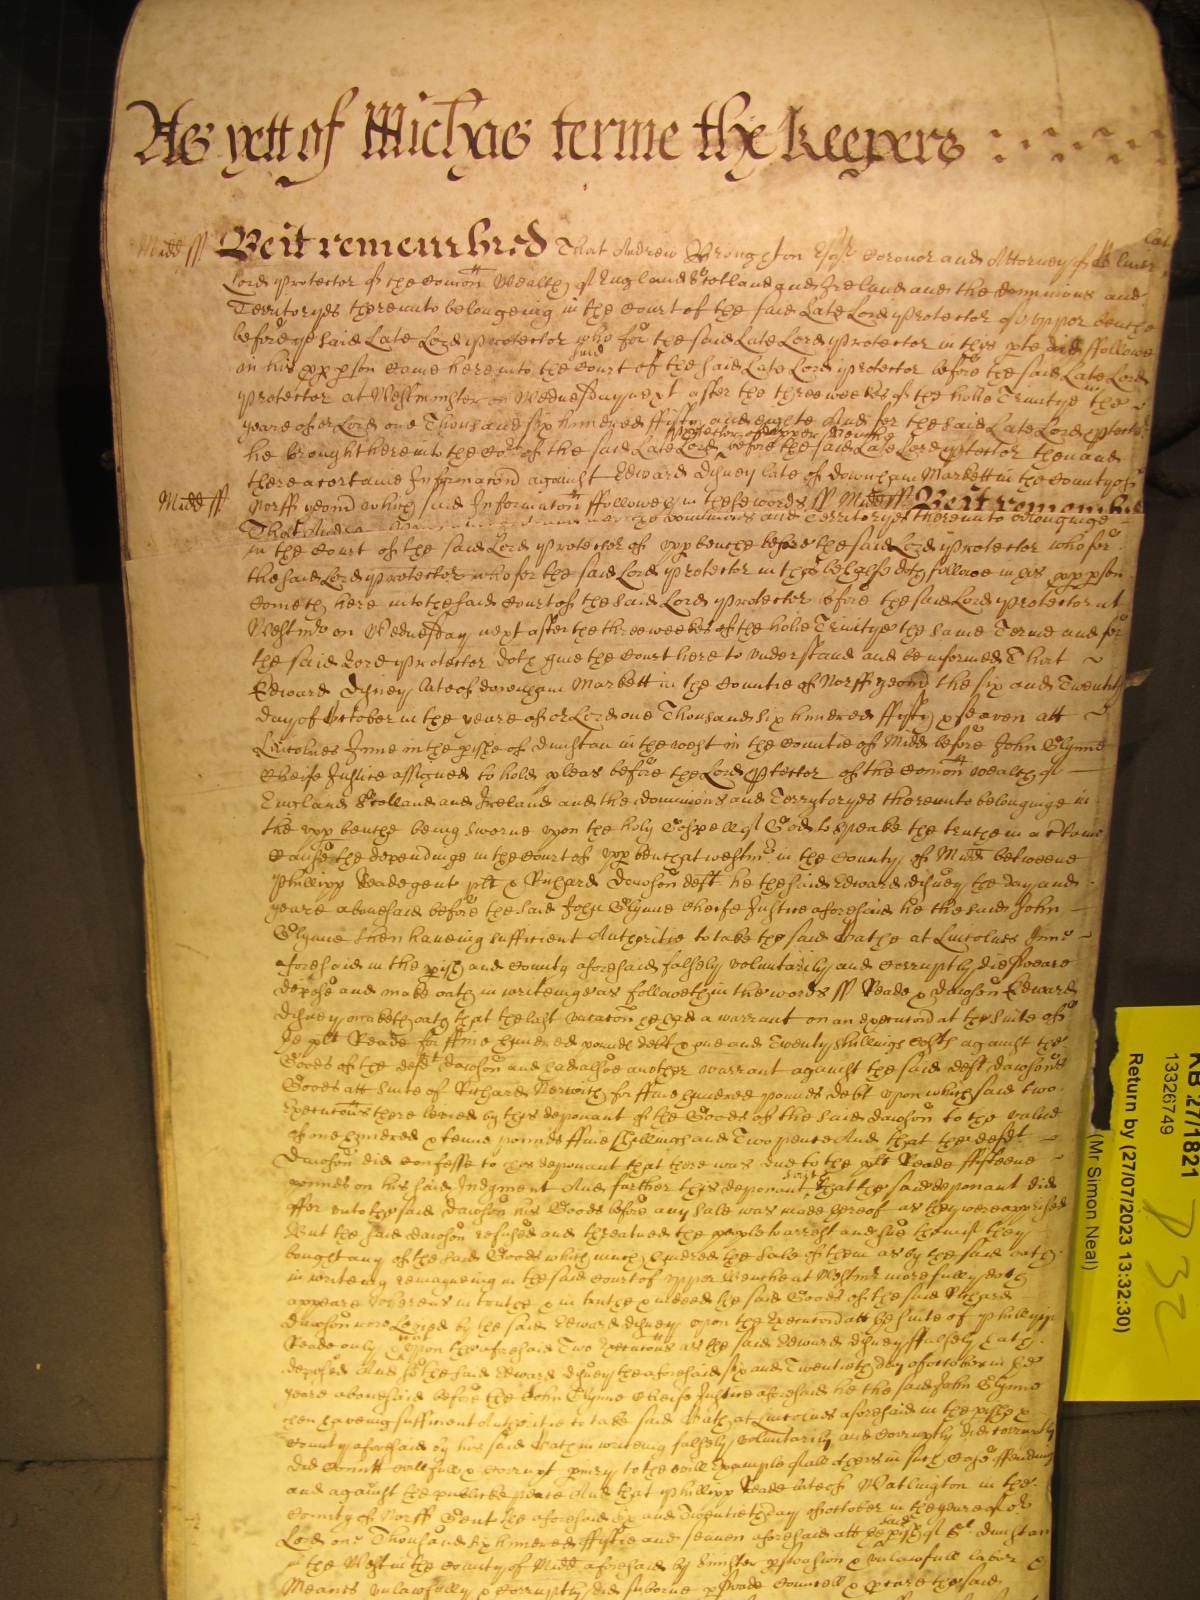 As yett of Michas terme the Keepers
Midd ss Be it remembred That Andrew Broughton Esqr Coronor and Attorney of the late
Lord Protector of the Comon Wealth of England Scotland and Ireland and the dominions and
Territoryes thereunto belongeing in the Court of the said Late Lord Protector of Upper bench
before the said Late Lord Protector who for the said Late Lord Protector in this pte did ffollowe
in his pp pson came here into the said Court of the said Late Lord Protector before the said Late Lord
Protector at Westminster on Wednesday next after the three weekes of the holie Trinitye in the
yeare of or Lord one Thousand six hundred ffifty and eighte And for the said Late Lord Ptector
he brought here into the Cort of the said Late Lord Protector of Upper Bench before the said Late Lord Protector then and
there a certaine Informacon against Edward Disney late of downham Markett in the County of
Midd ss Norff yeom which said Informacon ffolloweth in these words ss Midd ss Be it remembred
That Andrew dominions and Territoryes thereunto belonginge
in the Court of the said Lord Protector of upp bench before the said Lord Protector who for
the said Lord Protector who for the said Lord Protector in this behalfe doth follow in his pp pson
cometh here into the said Court of the said Lord Protector before the said Lord Protector at
Westmr on Wednesday next after the three weekes of the holie Trinitye the same Terme and for
the said Lord Protector doth give the Court here to understand and be informed That
Edward Disney late of downham Markett in the Countie of Norff yeom the six and Twentith
day of October in the yeare of or Lord one Thousand six hundred ffifty & seaven att
Lincolnes Inne in the pishe of Dunstan in the west in the Countie of Midd before John Glynne
Cheife Justice assigned to hold pleas before the Lord Ptector of the Comon wealth of
England Scotland and Ireland and the dominions and Territoryes thereunto belonginge in
the upp bench being sworne upon the holy Gospell of God to speake the truth in a Ctaine
Cause the dependinge in the Court of Upp bench at westmr in the County of Midd betweene
Phillipp Reade gent plt & Richard Dawson deft he the said Edward Disney the day and
yeare abovesaid before the said John Glynne Cheife Justice aforesaid he the said John
Glynne then haveing sufficient Authoritie to take the said Oathe at Lincolnes Inne
aforesaid in the pish and County aforesaid falsely voluntarily and corruptly did sweare
depose and make oath in writeinge as followeth in the words ss Reade & Dawson Edward
Disney maketh oath that the last vacacon he had a warrant on an execucon at the suite of
the plt Reade for ffive hundred pounds debt & one and Twenty shillings costs against the
Goods of the deft Dawson and had alsoe another warrant against the said deft Dawsons
Goods att suite of Richard for ffive hundred pounds debt upon which said two
Execucons there levied by this deponant of the Goods of the said Dawson to the value
of one hundred & tenne pounds ffive shillings and Two pence And that the deft
Dawson did confesse to this deponant that there was due to the plt Reade ffifteene
pounds on his said Judgment And further this deponant saith that the said deponant did
offer unto the said Dawson his Goods before any sale was made thereof as they were apprised
But the said Dawson refused and threatned the people to arrest and sue them if they
bought any of the said Goods which much hindred the sale of them as by the said oath
in writeing remayneing in the said Court of Upper Bench at Westmr more fully doth
appeare Whereas in truth & in truth & indeed the said Goods of the said Richard
Dawson were Levyed by the said Edward Disney upon the Execucon att the suite of Phillipp
Reade only & not upon the aforesaid Two Execucons as the said Edward Disney ffalsely hath
deposed And so the said Edward Disney the aforesaid six and Twentieth day of October in the
yeare abovesaid before the John Glynne Cheife Justice aforesaid he the said John Glynne
then haveing sufficient Authoritie to take said Oath at Lincolnes aforesaid in the pishe &
County aforesaid by his said Oath in writeing falsely voluntarily and corruptly did corruptly
did comitt willfull & corrupt piury to the evill Example of all others in such case offending
and against the publicke peace And that Phillipp Reade late of Watlington in the
County of Norff Gent the aforesaid six and Twentieth day of October in the yeare of or
Lord one Thousand six hundred ffiftie and seaven aforesaid att the said pish of St Dunstan
in the West in the County of Midd aforesaid by sinister pswasion & unlawfull labor &
Meanes unlawfully & corruptly did suborne pswade Councell & pcure the said
KB 27/1821
13326749
Return by (27/07/2023 13:32:30)
(Mr Simon Neal)